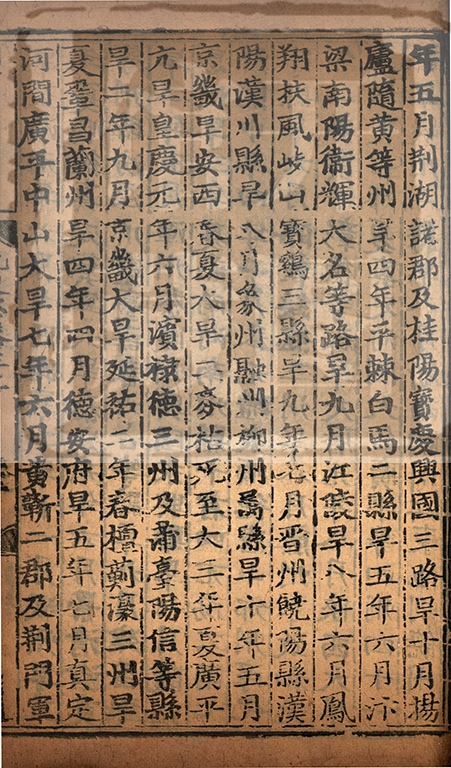 年五月荆湖諸郡及桂陽寶慶興國三路旱十月揚
廬隨黄等州旱四年平棘白馬二縣旱五年六月汴
梁南陽衞輝大名等路旱九月江陵旱八年六月鳳
翔扶風岐山寶鷄三縣旱九年七月晋州饒陽縣漢
陽漢川縣旱八月象州融州柳州属縣旱十年五月
京畿旱安西春夏大旱二麥枯死至大三年夏廣平
亢旱皇慶元年六月濱棣德三州及蒲臺陽信等縣
旱二年九月京畿大旱延祐二年春檀薊濠三州旱
夏鞏昌蘭州旱四年四月德安府旱五年七月真定
河間廣平中山大旱七年六月黄蘄二郡及荆門軍